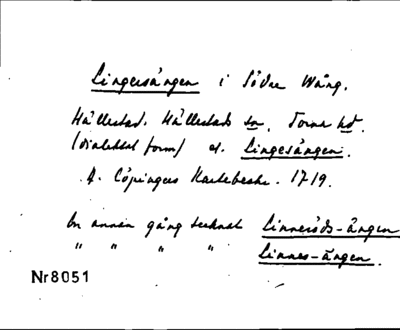 Lingersängen i Södre Wång.
Hällestad. Hällestads sn. Torna hd.
(dialektal form) el. Lingesängen.
A. Cöpingers Kartebeskr. 1719.
En annan gång tecknat Linneröds-ängen
" " " " Linnes-ängen.
Nr 8051